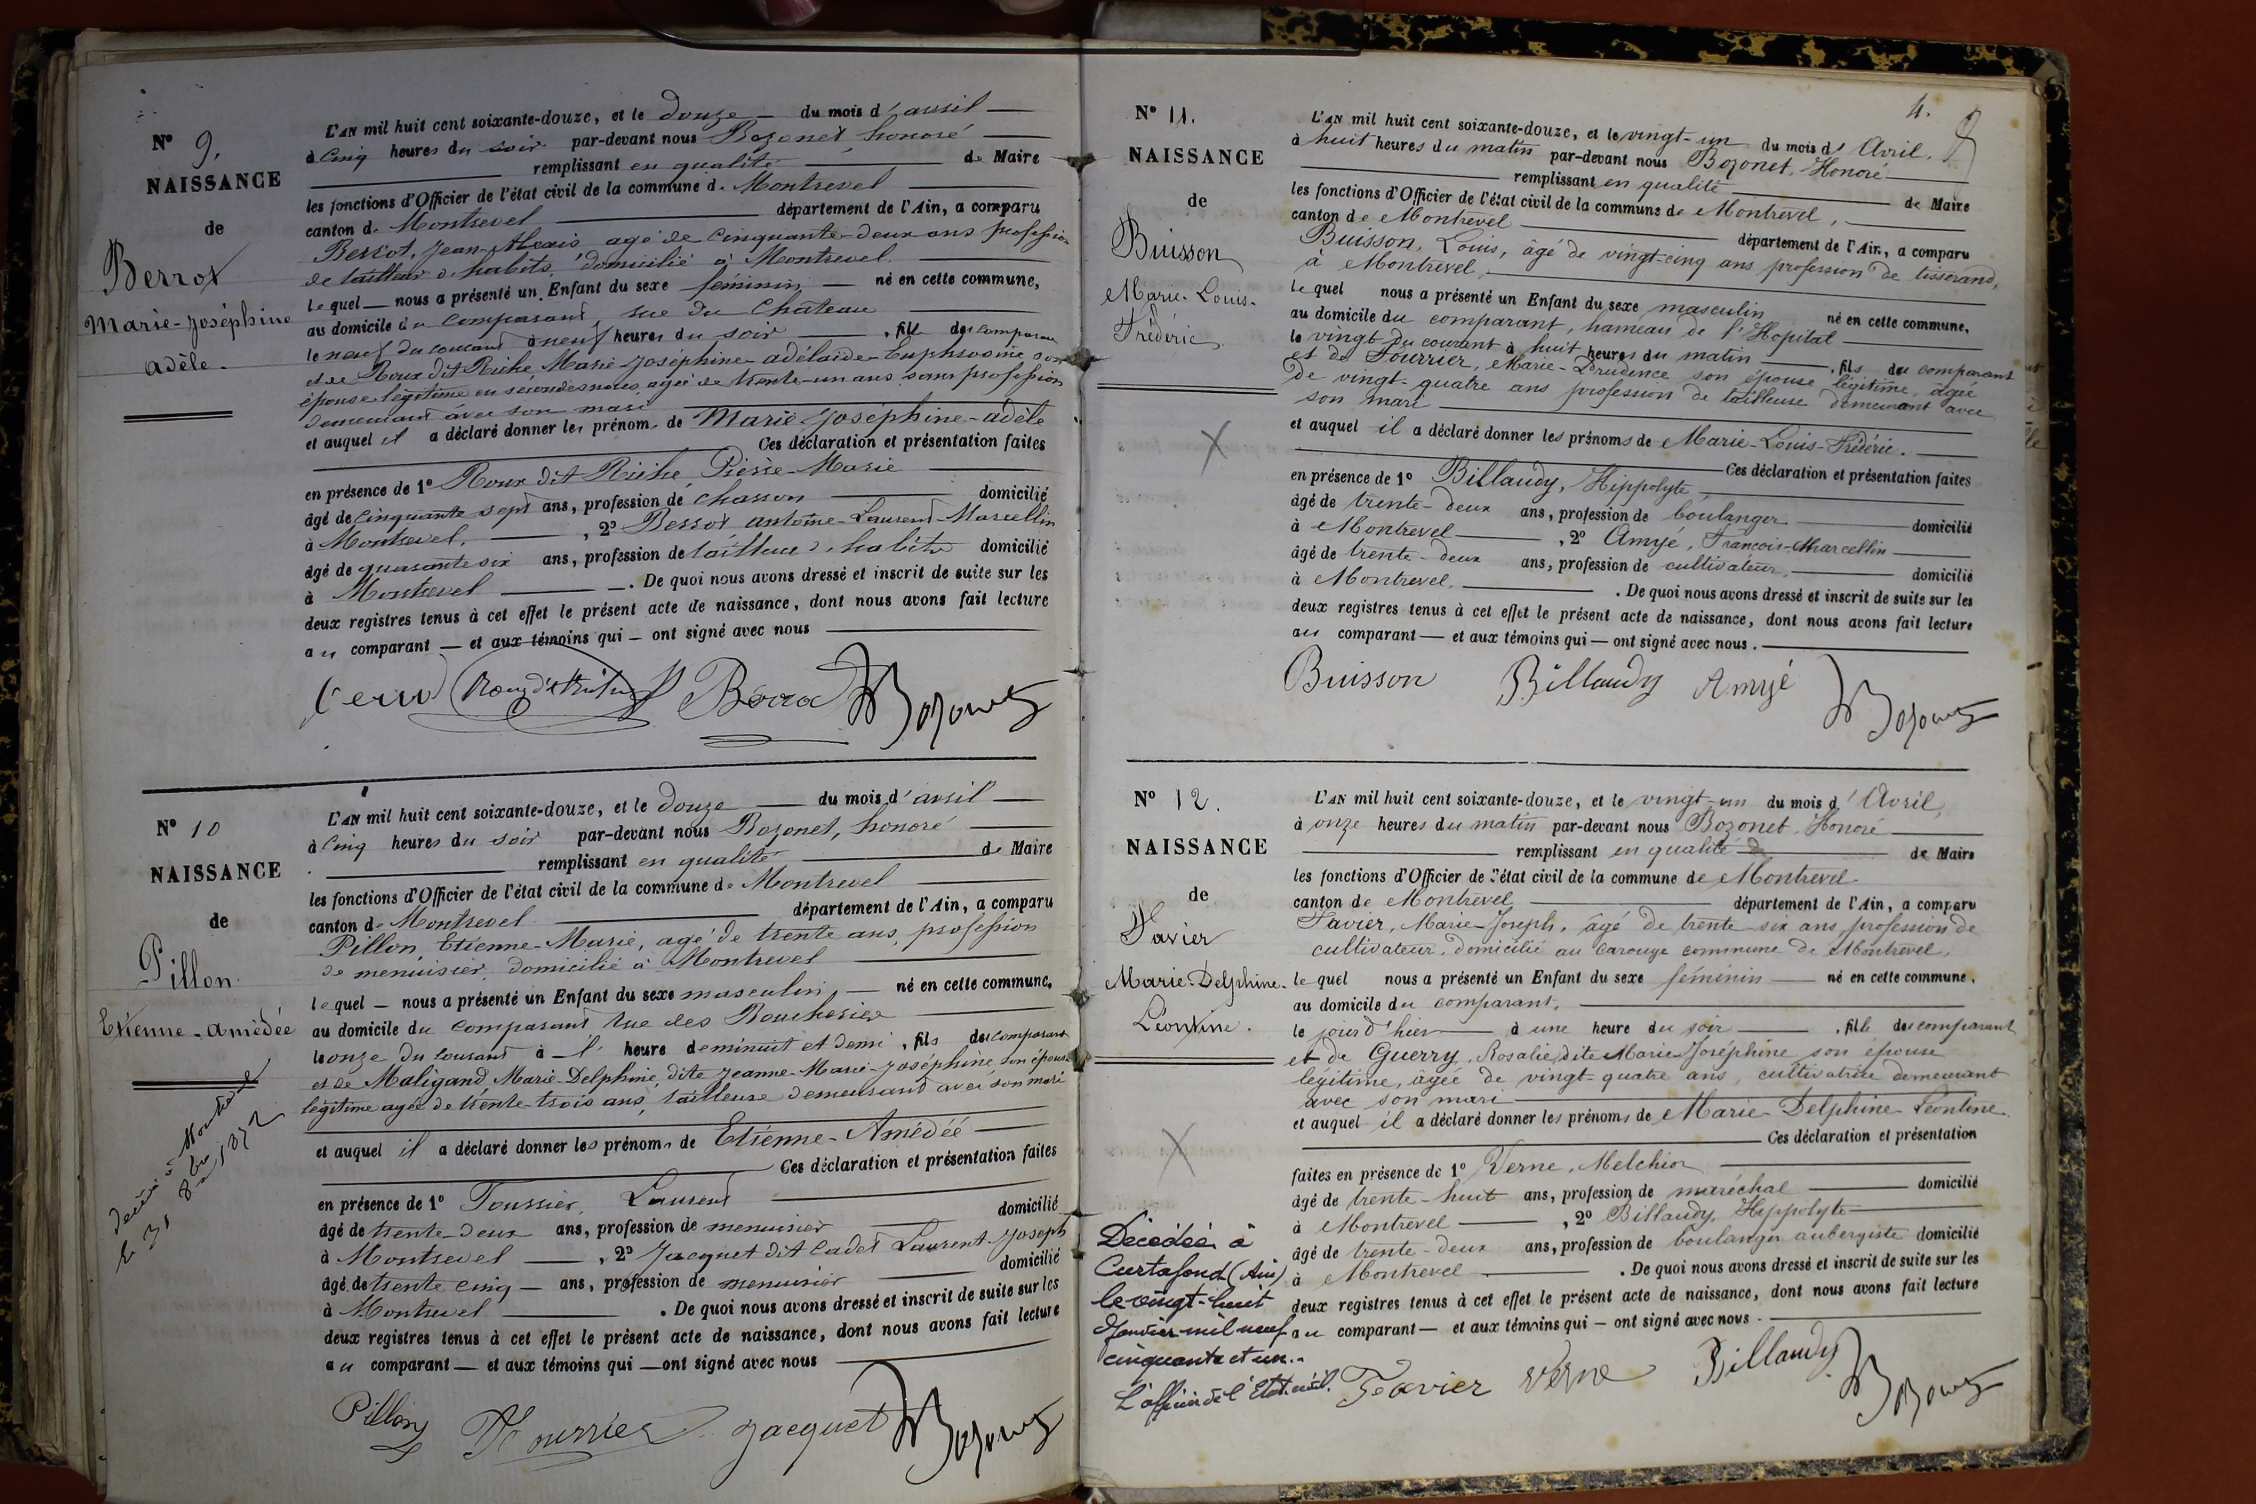 N° 9.
NAISSANCE
de
Berrot
Marie-Joséphine
adèle.
L'AN mil huit cent soixante-douze, et le douze du mois d'avril
à cinq heures du soir par-devant nous Bozonet, honoré
remplissant en qualité de Maire
les fonctions d'Officier de l'état civil de la commune de Montrevel
canton de Montrevel département de l'Ain, a comparu
Berrot, Jean-Alexis agé de cinquante-deux ans profession
de tailleur d'habits, domicilié à Montrevel.
lequel nous a présenté un Enfant du sexe féminin, né en cette commune,
au domicile du comparant, rue du Château
le neuf du courant à neuf heures du soir, fille du comparant
et de Roux dit Riche Marie-Joséphine-adélaïde-Euphrosine son
épouse légitime en secondes noces, agée de trente-un ans sans profession
demeurant avec son mari
et auquel il a déclaré donner les prénoms de Marie-Joséphine-adèle
Ces déclaration et présentation faites
en présence de 1° Roux dit Riche Pierre-Marie
âgé de cinquante sept ans, profession de charron domicilié
à Montrevel, , 2° Berrot antoine-Laurent-Marcellin
âgé de quarante six ans, profession de tailleur d'habits domicilié
à Montrevel . De quoi nous avons dressé et inscrit de suite sur les
deux registres tenus à cet effet le présent acte de naissance, dont nous avons fait lecture
au comparant et aux témoins qui ont signé avec nous
Bozonet
N° 10
NAISSANCE
de
Pillon
Etienne-amédée
L'AN mil huit cent soixante-douze, et le douze du mois d'avril
à cinq heures du soir par-devant nous Bozonet, honoré
remplissant en qualité de Maire
les fonctions d'Officier de l'état civil de la commune de Montrevel
canton de Montrevel département de l'Ain, a comparu
Pillon, Etienne-Marie, agé de trente ans, profession
de menuisier, domicilié à Montrevel
lequel nous a présenté un Enfant du sexe masculin, né en cette commune,
au domicile du comparant rue des Boucheries
le onze du courant à l' heure de minuit et demi, fils du comparant
et de Maligand Marie-Delphine, dite Jeanne-Marie-Joséphine, son épouse
légitime agée de trente-trois ans, tailleuse demeurant avec son mari
et auquel il a déclaré donner les prénoms de Etienne-Amédée
Ces déclaration et présentation faites
en présence de 1° Laurent
âgé de trente-deux ans, profession de menuisier domicilié
à Montrevel , 2° Jacquet dit Cadet Laurent-Joseph
âgé de trente cinq ans, profession de menuisier domicilié
à Montrevel . De quoi nous avons dressé et inscrit de suite sur les
deux registres tenus à cet effet le présent acte de naissance, dont nous avons fait lecture
au comparant et aux témoins qui ont signé avec nous
décédé à Montrevel
le 31 8bre 1872
Pillon Jacquet Bozonet
4.
N° 11.
NAISSANCE
de
Buisson
Marie-Louis-
Frédéric
L'AN mil huit cent soixante-douze, et le vingt-un du mois d'Avril.
à huit heures du matin par-devant nous Bozonet, Honoré
remplissant en qualité de Maire
les fonctions d'Officier de l'état civil de la commune de Montrevel,
canton de Montrevel département de l'Ain, a comparu
Buisson, Louis, âgé de vingt-cinq ans profession de tisserand,
à Montrevel,
lequel nous a présenté un Enfant du sexe masculin né en cette commune,
au domicile du comparant, hameau de l'Hopital
le vingt du courant à huit heures du matin, fils du comparant
et de Fourrier, Marie-Prudence son épouse légitime, âgée
de vingt-quatre ans profession de tailleuse demeurant avec
son mari
et auquel il a déclaré donner les prénoms de Marie-Louis-Frédéric.
Ces déclaration et présentation faites
en présence de 1° Billaudy, Hippolyte
âgé de trente-deux ans, profession de boulanger domicilié
à Montrevel , 2° Amyé, François-Marcellin
âgé de trente-deux ans, profession de cultivateur, domicilié
à Montrevel. . De quoi nous avons dressé et inscrit de suite sur les
deux registres tenus à cet effet le présent acte de naissance, dont nous avons fait lecture
au comparant et aux témoins qui ont signé avec nous.
Buisson Billaudy Amyé Bozonet
N° 12.
NAISSANCE
de
Favier
Marie-Delphine-
Léontine.
L'AN mil huit cent soixante-douze, et le vingt-un du mois d'Avril,
à onze heures du matin par-devant nous Bozonet, Honoré
remplissant en qualité de Maire
les fonctions d'Officier de l'état civil de la commune de Montrevel.
canton de Montrevel département de l'Ain, a comparu
Favier, Marie-Joseph, âgé de trente-six ans, profession de
cultivateur, domicilié au Carouge commune de Montrevel,
lequel nous a présenté un Enfant du sexe féminin né en cette commune,
au domicile du comparant,
le jourd'hier à une heure du soir, fille du comparant
et de Guerry, Rosalie, dite Marie-Joséphine son épouse
légitime, âgée de vingt-quatre ans, cultivatrice demeurant
avec son mari
et auquel il a déclaré donner les prénoms de Marie-Delphine-Léontine.
Ces déclaration et présentation
faites en présence de 1° Verne, Melchior
âgé de trente-huit ans, profession de maréchal domicilié
à Montrevel , 2° Billaudy, Hippolyte
âgé de trente-deux ans, profession de boulanger aubergiste domicilié
à Montrevel . De quoi nous avons dressé et inscrit de suite sur les
deux registres tenus à cet effet le présent acte de naissance, dont nous avons fait lecture
au comparant et aux témoins qui ont signé avec nous.
Décédée à
Curtafond (Ain)
le vingt-huit
Janvier mil neuf
cinquante et un.
L'officier de l'Etat-civil.
Favier Verne Billaudy Bozonet